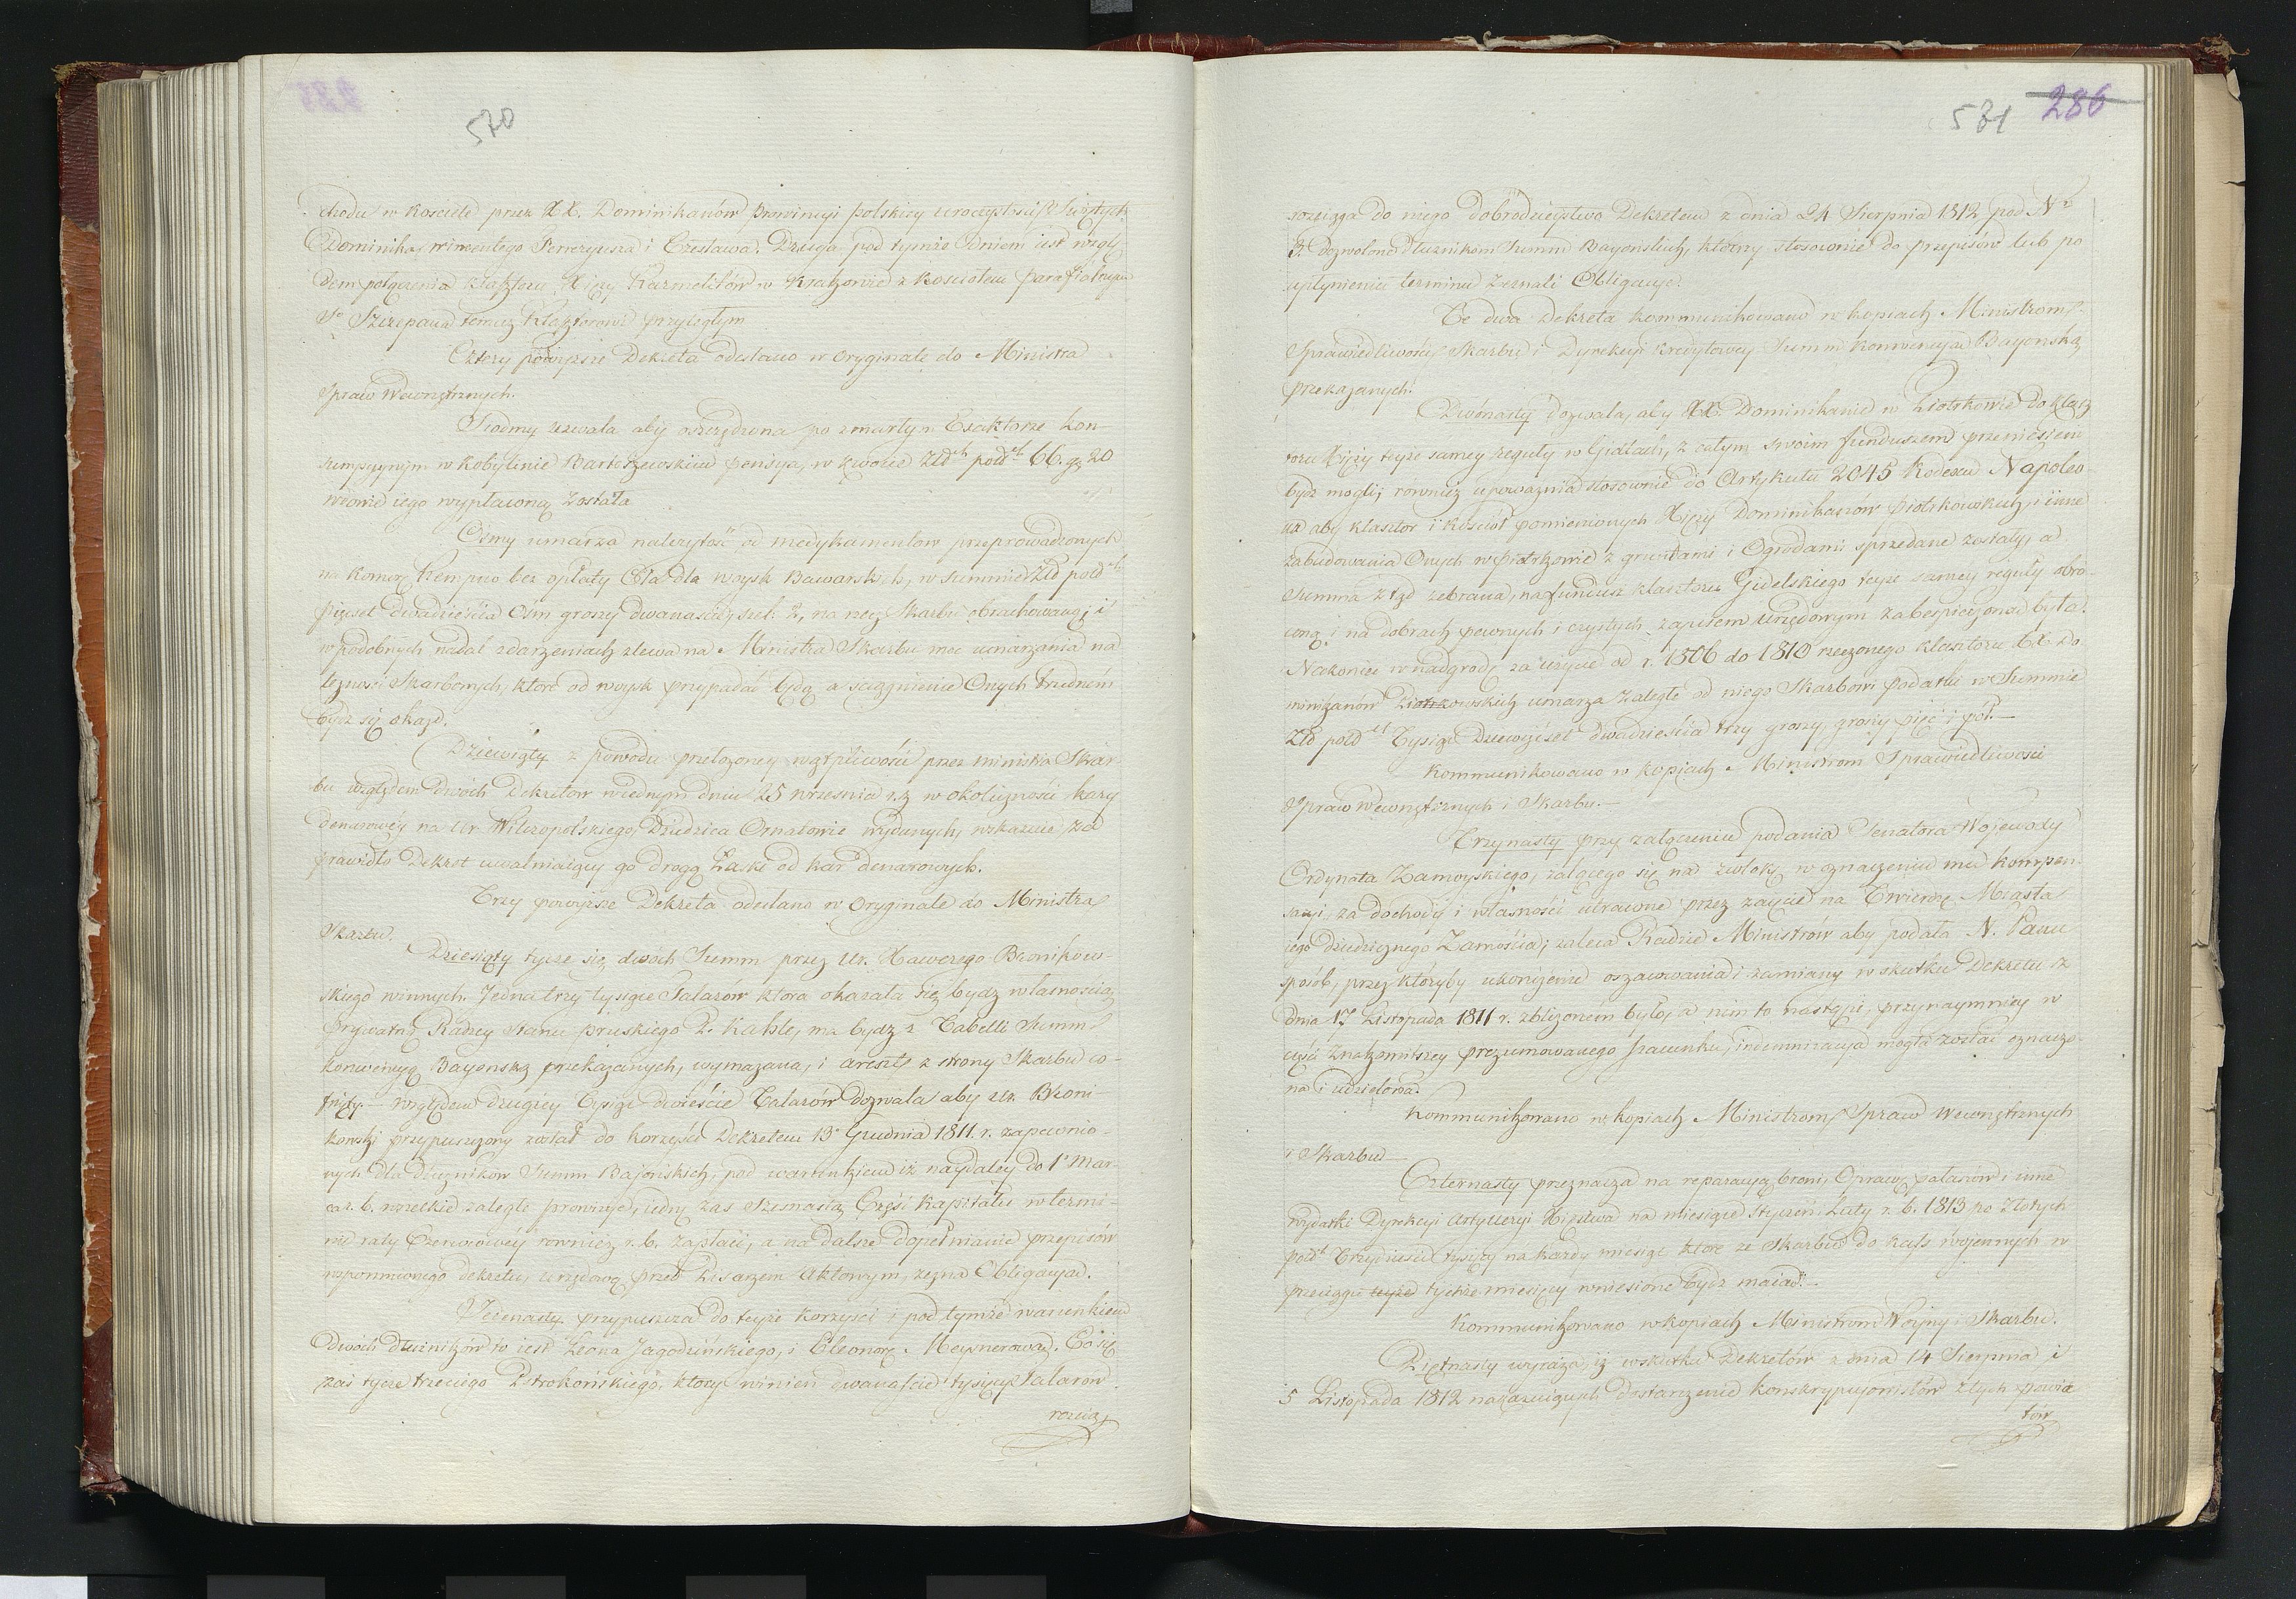 570
chodu w kosciele przez XX. Dominikanów Prowincyi polskiey uroczystości Świętych
Dominika, Wincentego Ferreryusza i Czesława. Druga pod tymże dniem iest wzglę-
dem połączenia klasztoru Xięży Karmelitów w Krakowie z kosciołem parafialnym
So Szczepana temuż Klasztorowi przyległym
Cztery powyższe Dekreta odesłano w oryginale do Ministra
Spraw Wewnętrznych.
Siodmy zezwala aby oszczędzona po zmarłym Exaktorze kon-
sumpcyinym w Kobylinie Bartoszewskim pensya, w kwocie Złotch polsch 66. gr 20
wdowie iego wypłaconą została
Osmy umarza należytość od medykamentow przeprowadzonych
na komorę Kempno bez opłaty Cła dla woysk Bawarskich, w summie Złd polsch
pięćset dwadzieścia Osm groszy dwanaście, szel: 2, na rzecz Skarbu obrachowaną, i
w podobnych nadal zdarzeniach zlewa na Ministra Skarbu moc umarzania na
leżności Skarbowych, które od woysk przypadać będą a sciągnienie Onych trudném
bydź się okaże.
Dziewiąty z powodu przełożoney wątpliwości przez Ministra Skar-
bu względem dwóch Dekretow w iednym dniu 25 wrzesnia r.z. w okoliczności kary
denarowéy na Ur. Wilczopolskiego, Dziedzica Ornatowic wydanych, wskazuie za
prawidło Dekret uwalniaiący go drogą Łaski od kar denarowych.
Trzy powyższe Dekreta odesłano w oryginale do Ministra
Skarbu.
Dziesiąty tycze się dwóch Summ przez Ur. Xawerego Bronikow-
skiego winnych. Jedna trzy tysiące Talarów ktora okazała się bydź własnością
prywatną Radzcy Stanu pruskiego P. Kahle, ma bydź z Tabelli Summ
konwencyą Bayonską przekazanych, wymazana, i areszt z strony Skarbu co-
fnięty. – względem drugiey Tysiąc dwieście Talarów dozwala aby Ur. Broni-
kowski przypuszczony został do korzyści Dekretem 13o Grudnia 1811. r. zapewnio-
nych dla dłużników Summ Bajońskich, pod warunkiem iż naydaley do 1o Mar-
ca r. b. wszelkie zaległe prowizye, iednę zas szesnastą Część kapitału w termi-
nie raty Czerwcowey również r. b. zapłaci, a na dalsze dopełnianie przepisów
wspomnionego dekretu, urzędową przed Pisarzem Aktowym, zezna Obligacyą.
Jedenasty przypuszcza do teyże korzyści i pod tymże warunkiem
dwóch dłużników to iest Leona Jagodzińskiego, i Eleonorę Meisnerową. Co się
zaś tycze trzeciego Pstrokońskiego, ktory winien dwanaście tysięcy Talarów
rozcią
571 286
rozciąga do niego dobrodzieystwo Dekretem z dnia 24 Sierpnia 1812 pod No
3. Dozwolone Dłużnikom Summ Bayonskich, którzy stosownie do przepisów lub po
upłynieniu terminu Zeznali Obligacye.
Te dwa Dekreta kommunikowano w kopiach Ministrom
Sprawiedliwości Skarbu i Dyrekcyi kredytowey Summ Konwencyą Bayonską
przekazanych.
Dwónasty dozwala, aby XX. Dominikanie w Piotrkowie do klasz
toru Xięży teyże samey reguły w Gidlach, z całym swoim funduszem przeniesieni
bydź mogli; również upoważnia stosownie do Artykułu 2045 Kodexu Napoleo-
na aby klasztor i kościół pomienionych Xięży Dominikanów piotrkowskich, i inne
zabudowania Onych w piotrkowie z gruntami i Ogrodami sprzedane zostały, a
summa ztąd zebrana, na fundusz klasztoru Gidelskiego teyże samey reguły obro-
coną i na dobrach pewnych i czystych zapisem urzędowym zabespieczoną była.
Nakoniec w nadgrodę za użycie od r. 1806 do 1810 rzeczonego klasztoru XX. Do
minikanów Piotrkowskich umarza zaległe od niego Skarbowi podatki w Summie
Złd polsch Tysiąc Dziewięćset dwadzieścia trzy groszy, groszy pięć i pół. –
Kommunikowano w kopiach Ministrom Sprawiedliwości
Spraw Wewnętrznych i Skarbu. –
Trzynasty przy załączeniu podania Senatora Wojewody
Ordynata Zamoyskiego, żalącego się nad zwłoką w oznaczeniu mu kompen-
sacyi, za dochody i własności utracone przez zajęcie na Twierdzę Miasta
iego dziedzicznego Zamościa; zaleca Radzie Ministrów aby podała N. Panu
sposób, przez któryby ukończenie oszacowania i zamiany w skutku Dekretu z
dnia 17 Listopada 1811 r. zbliżoném było, a nim to nastąpi, przynaymniey w
części znakomitszey prezumowanego szacunku, indemnizacya mogła zostać oznaczo-
na i udzielona.
Kommunikowano w kopiach Ministrom Spraw Wewnętrznych
i Skarbu –
Czternasty przeznacza na reparacyą broni, Oprawę pałaszów i inne
wydatki Dyrekcyi Artylleryi Xięstwa na miesiące Styczeń i Luty r. b. 1813 po złotych
polsch Trzydzieści tysięcy na każdy miesiąc które ze Skarbu do kass wojennych w
przeciągu teyże tychże miesięcy wniesione bydź maią. –
Kommunikowano w kopiach Ministrom Woyny i Skarbu.
Piętnasty wyraża, iż w skutku Dekretów z dnia 14 Sierpnia i
5 Listopada 1812 nakazuiących dostarczenie konskrypcyonistów z tych powia
tów